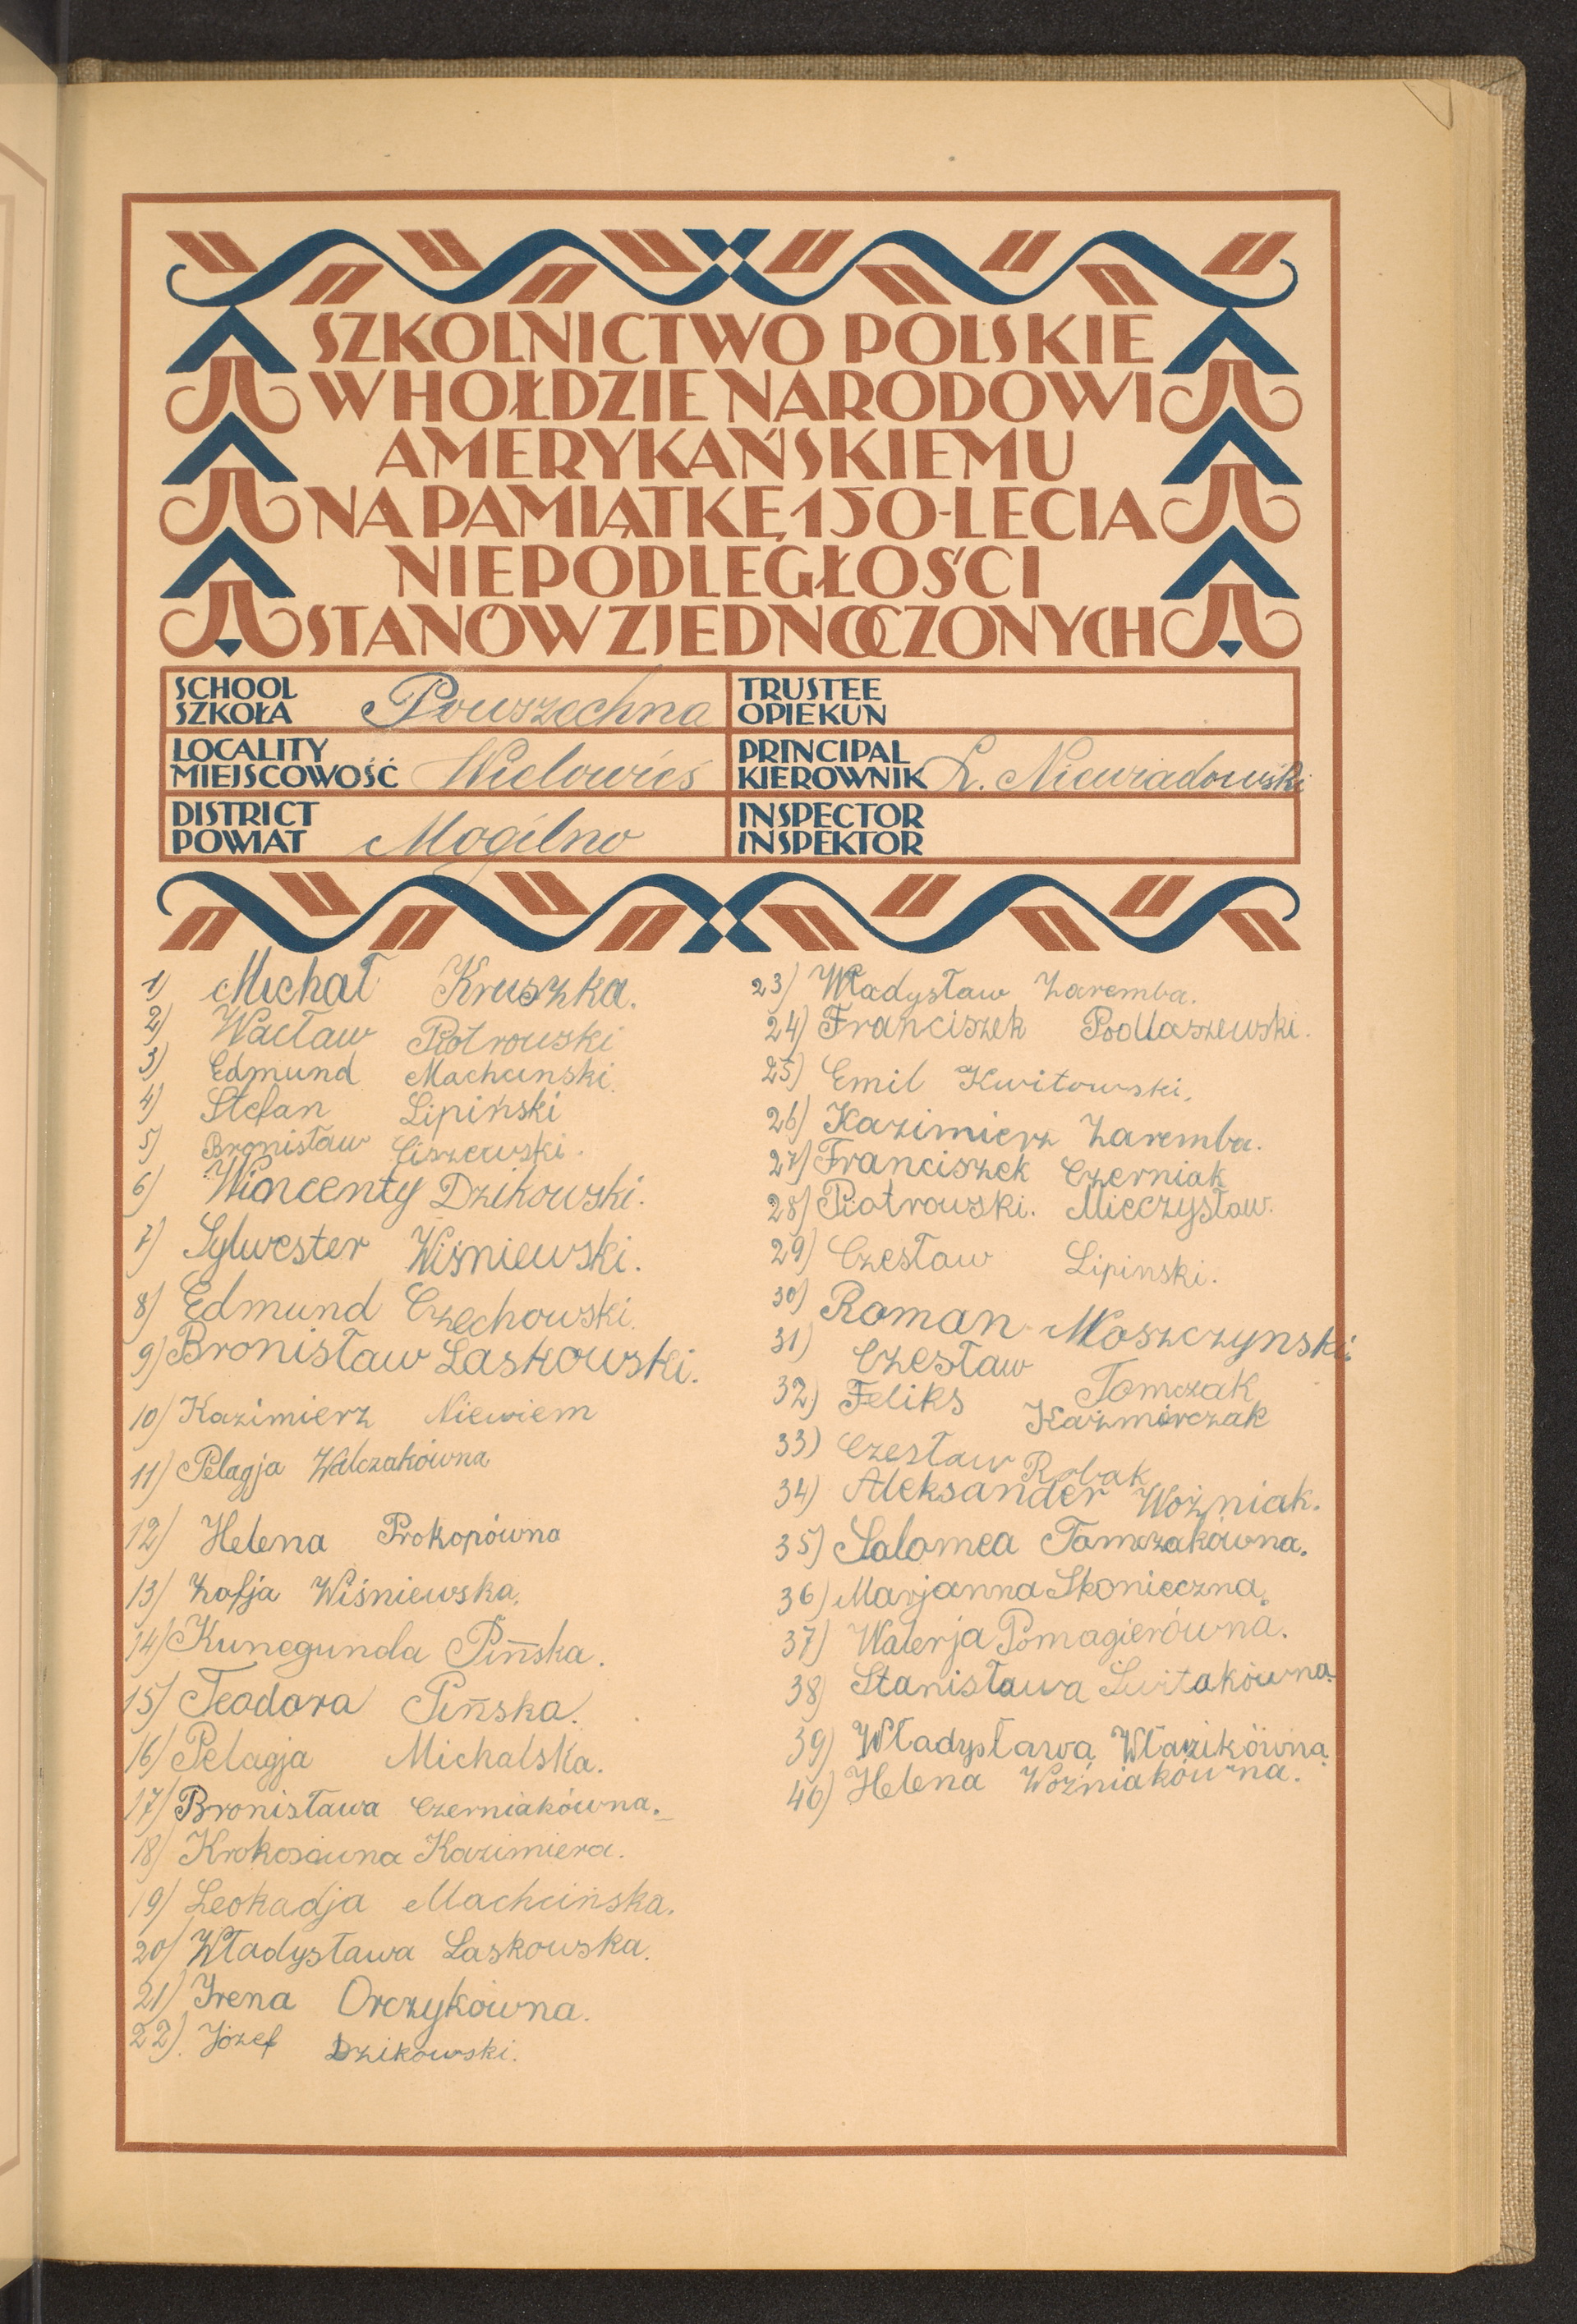 SZKOLNICTWO POLSKIE
W HOŁDZIE NARODOWI
AMERYKAŃSKIEMU
NA PAMIĄTKĘ 150-LECIA
NIEPODLEGŁOŚCI
STANÓW ZJEDNOCZONYCH
SCHOOL
SZKOŁA Powszechna
TRUSTEE
OPIEKUN
LOCALITY
MIEJSCOWOŚĆ Wielowieś
PRINCIPAL
KIEROWNIK L. Niewiadowski
DISTRICT
POWIAT Mogilno
INSPECTOR
INSPEKTOR
1) Michał Kruszka.
2) Wacław Piotrowski
3) Edmund Machcinski.
4) Stefan Lipiński
5) Bronisław Ciszewski.
6) Wincenty Dzikowski.
7) Sylwester Wiśniewski.
8) Edmund Czechowski.
9) Bronisław Laskowski.
10) Kazimierz Niewiem
11) Pelagja Walczakówna
12) Helena Prokopówna
13) Zofja Wiśniewska.
14) Kunegunda Pińska.
15) Teodora Pińska.
16) Pelagja Michalska.
17) Bronisława Czerniakówna.
18) Krokosówna Kazimiera.
19) Leokadja Machcińska.
20) Władysława Laskowska.
21) Irena Orczykówna.
22) Józef Dzikowski.
23) Władysław Zaremba.
24) Franciszek Podlaszewski.
25) Emil Kwitowski.
26) Kazimierz Zaremba.
27) Franciszek Czerniak
28) Piotrowski. Mieczysław.
29) Czesław Lipinski.
30) Roman Moszczynski.
31) Czesław Tomczak
32) Feliks Kaźmierczak
33) Czesław Robak
34) Aleksander Woźniak.
35) Salomea Tomczakówna.
36) Marjanna Skonieczna.
37) Walerja Pomagierówna.
38) Stanisława Świtakówna.
39) Władysława Włazikówna
40) Helena Woźniakówna.